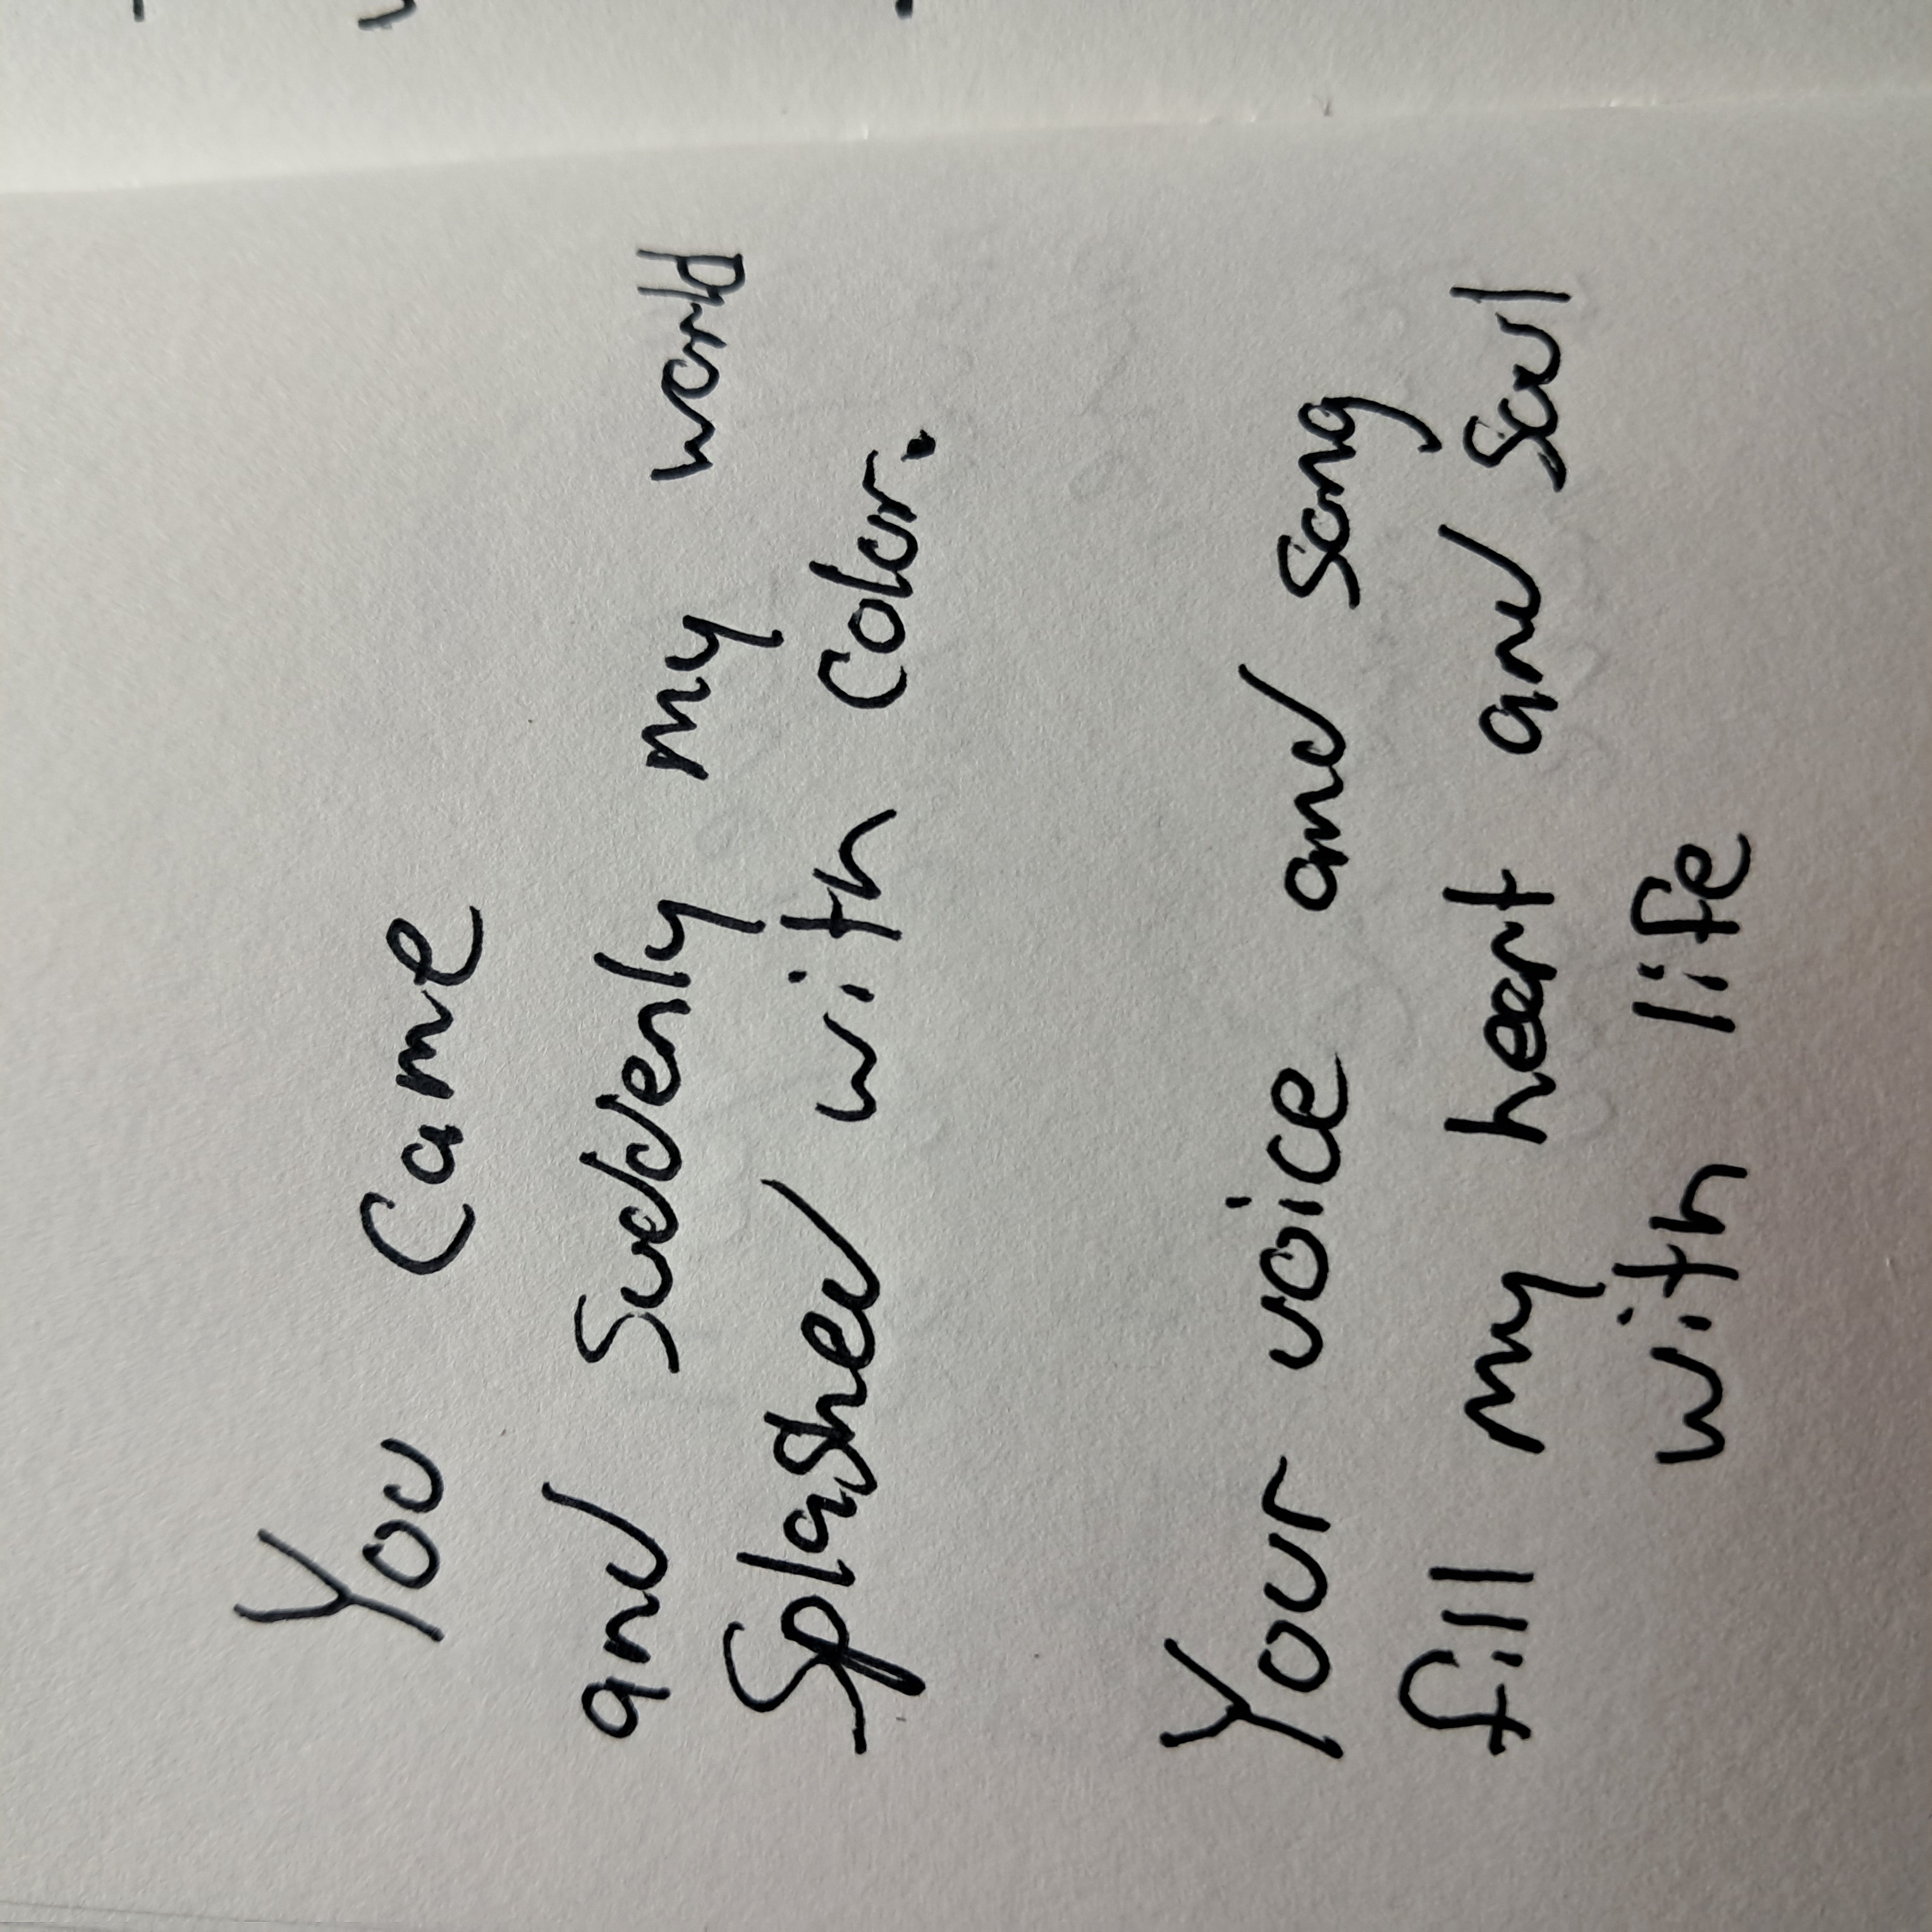 You came
and suddenly my world
Splashed with color.
Your voice and song
fill my heart and soul
with life